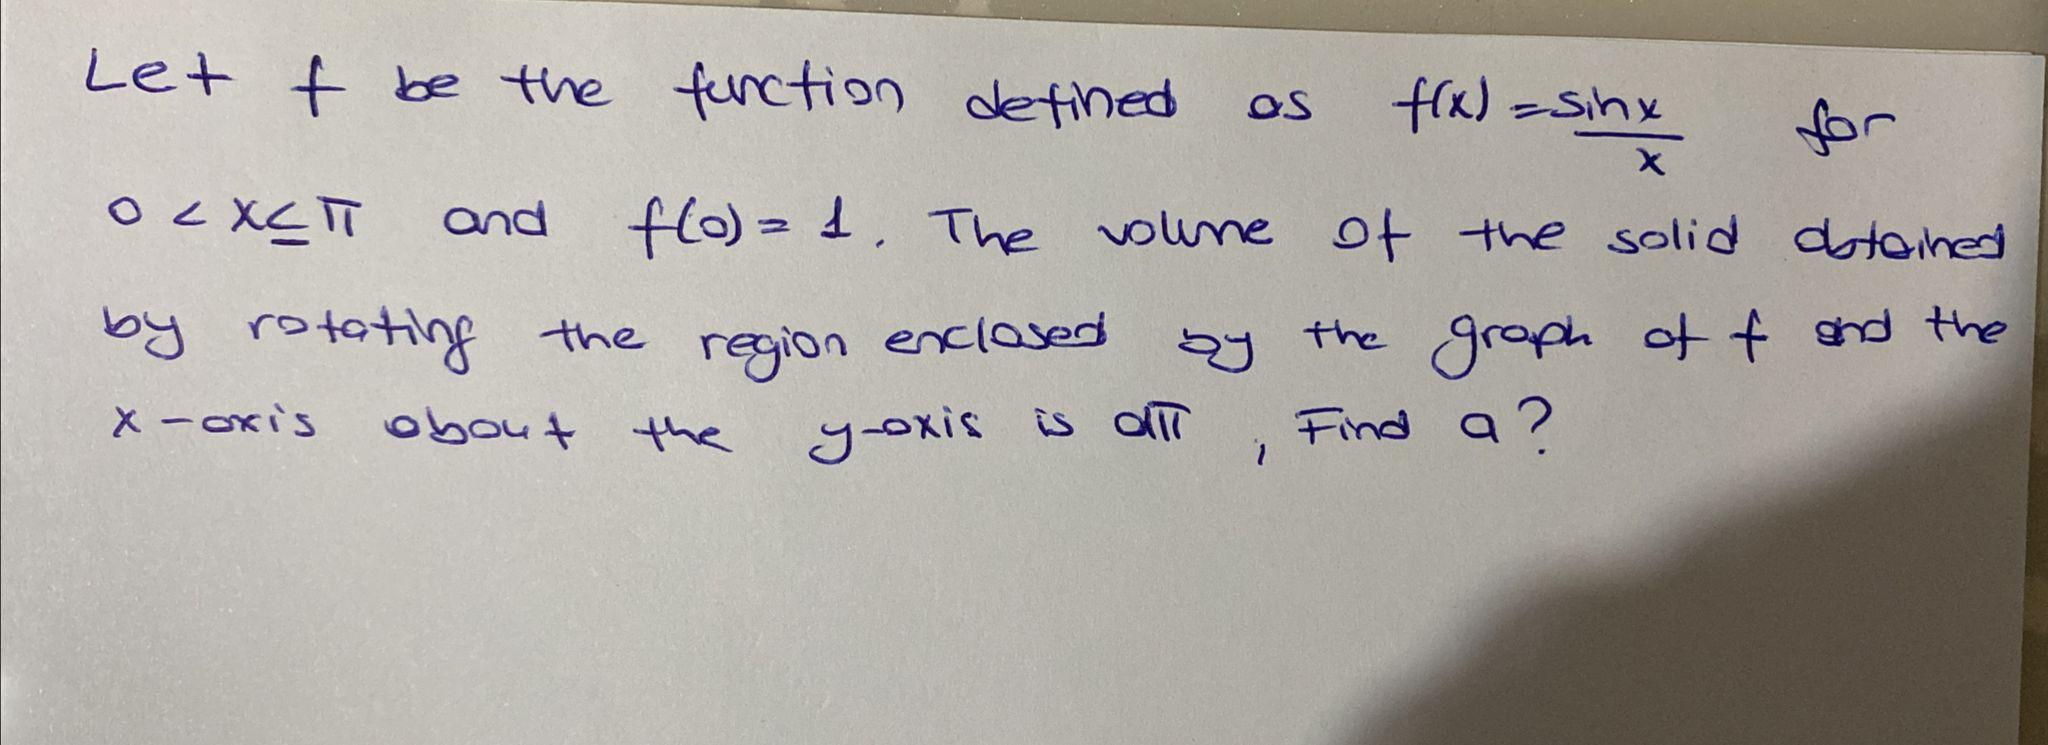 Let f be the function defined as f(x) = sinx/x for
0 < x ≤ π and f(0) = 1. The volume of the solid obtained
by rotating the region enclosed by the graph of f and the
x-axis about the y-axis is aπ, Find a?